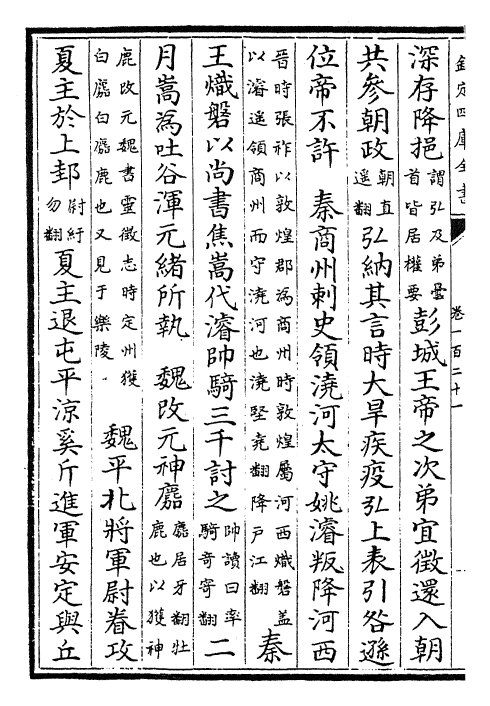 欽定四庫全書
卷一百二十一
深存降挹謂弘及弟曇首皆居權要彭城王帝之次弟宜徵還入朝
共參朝政朝直遥翻弘納其言時大旱疾疫弘上表引咎遜
位帝不許　秦商州刺史領澆河太守姚濬叛降河西
晉時張祚以敦煌郡為商州時敦煌屬河西熾磐盖以濬遥領商州而守澆河也澆堅堯翻降戶江翻秦
王熾磐以尚書焦嵩代濬帥騎三千討之帥讀曰率騎奇寄翻二
月嵩為吐谷渾元緒所執　魏改元神䴥䴥居牙翻牡鹿也以獲神
鹿改元魏書靈徵志時定州獲白䴥白䴥鹿也又見于樂陵　魏平北將軍尉眷攻
夏主於上邽尉紆勿翻夏主退屯平涼奚斤進軍安定與丘